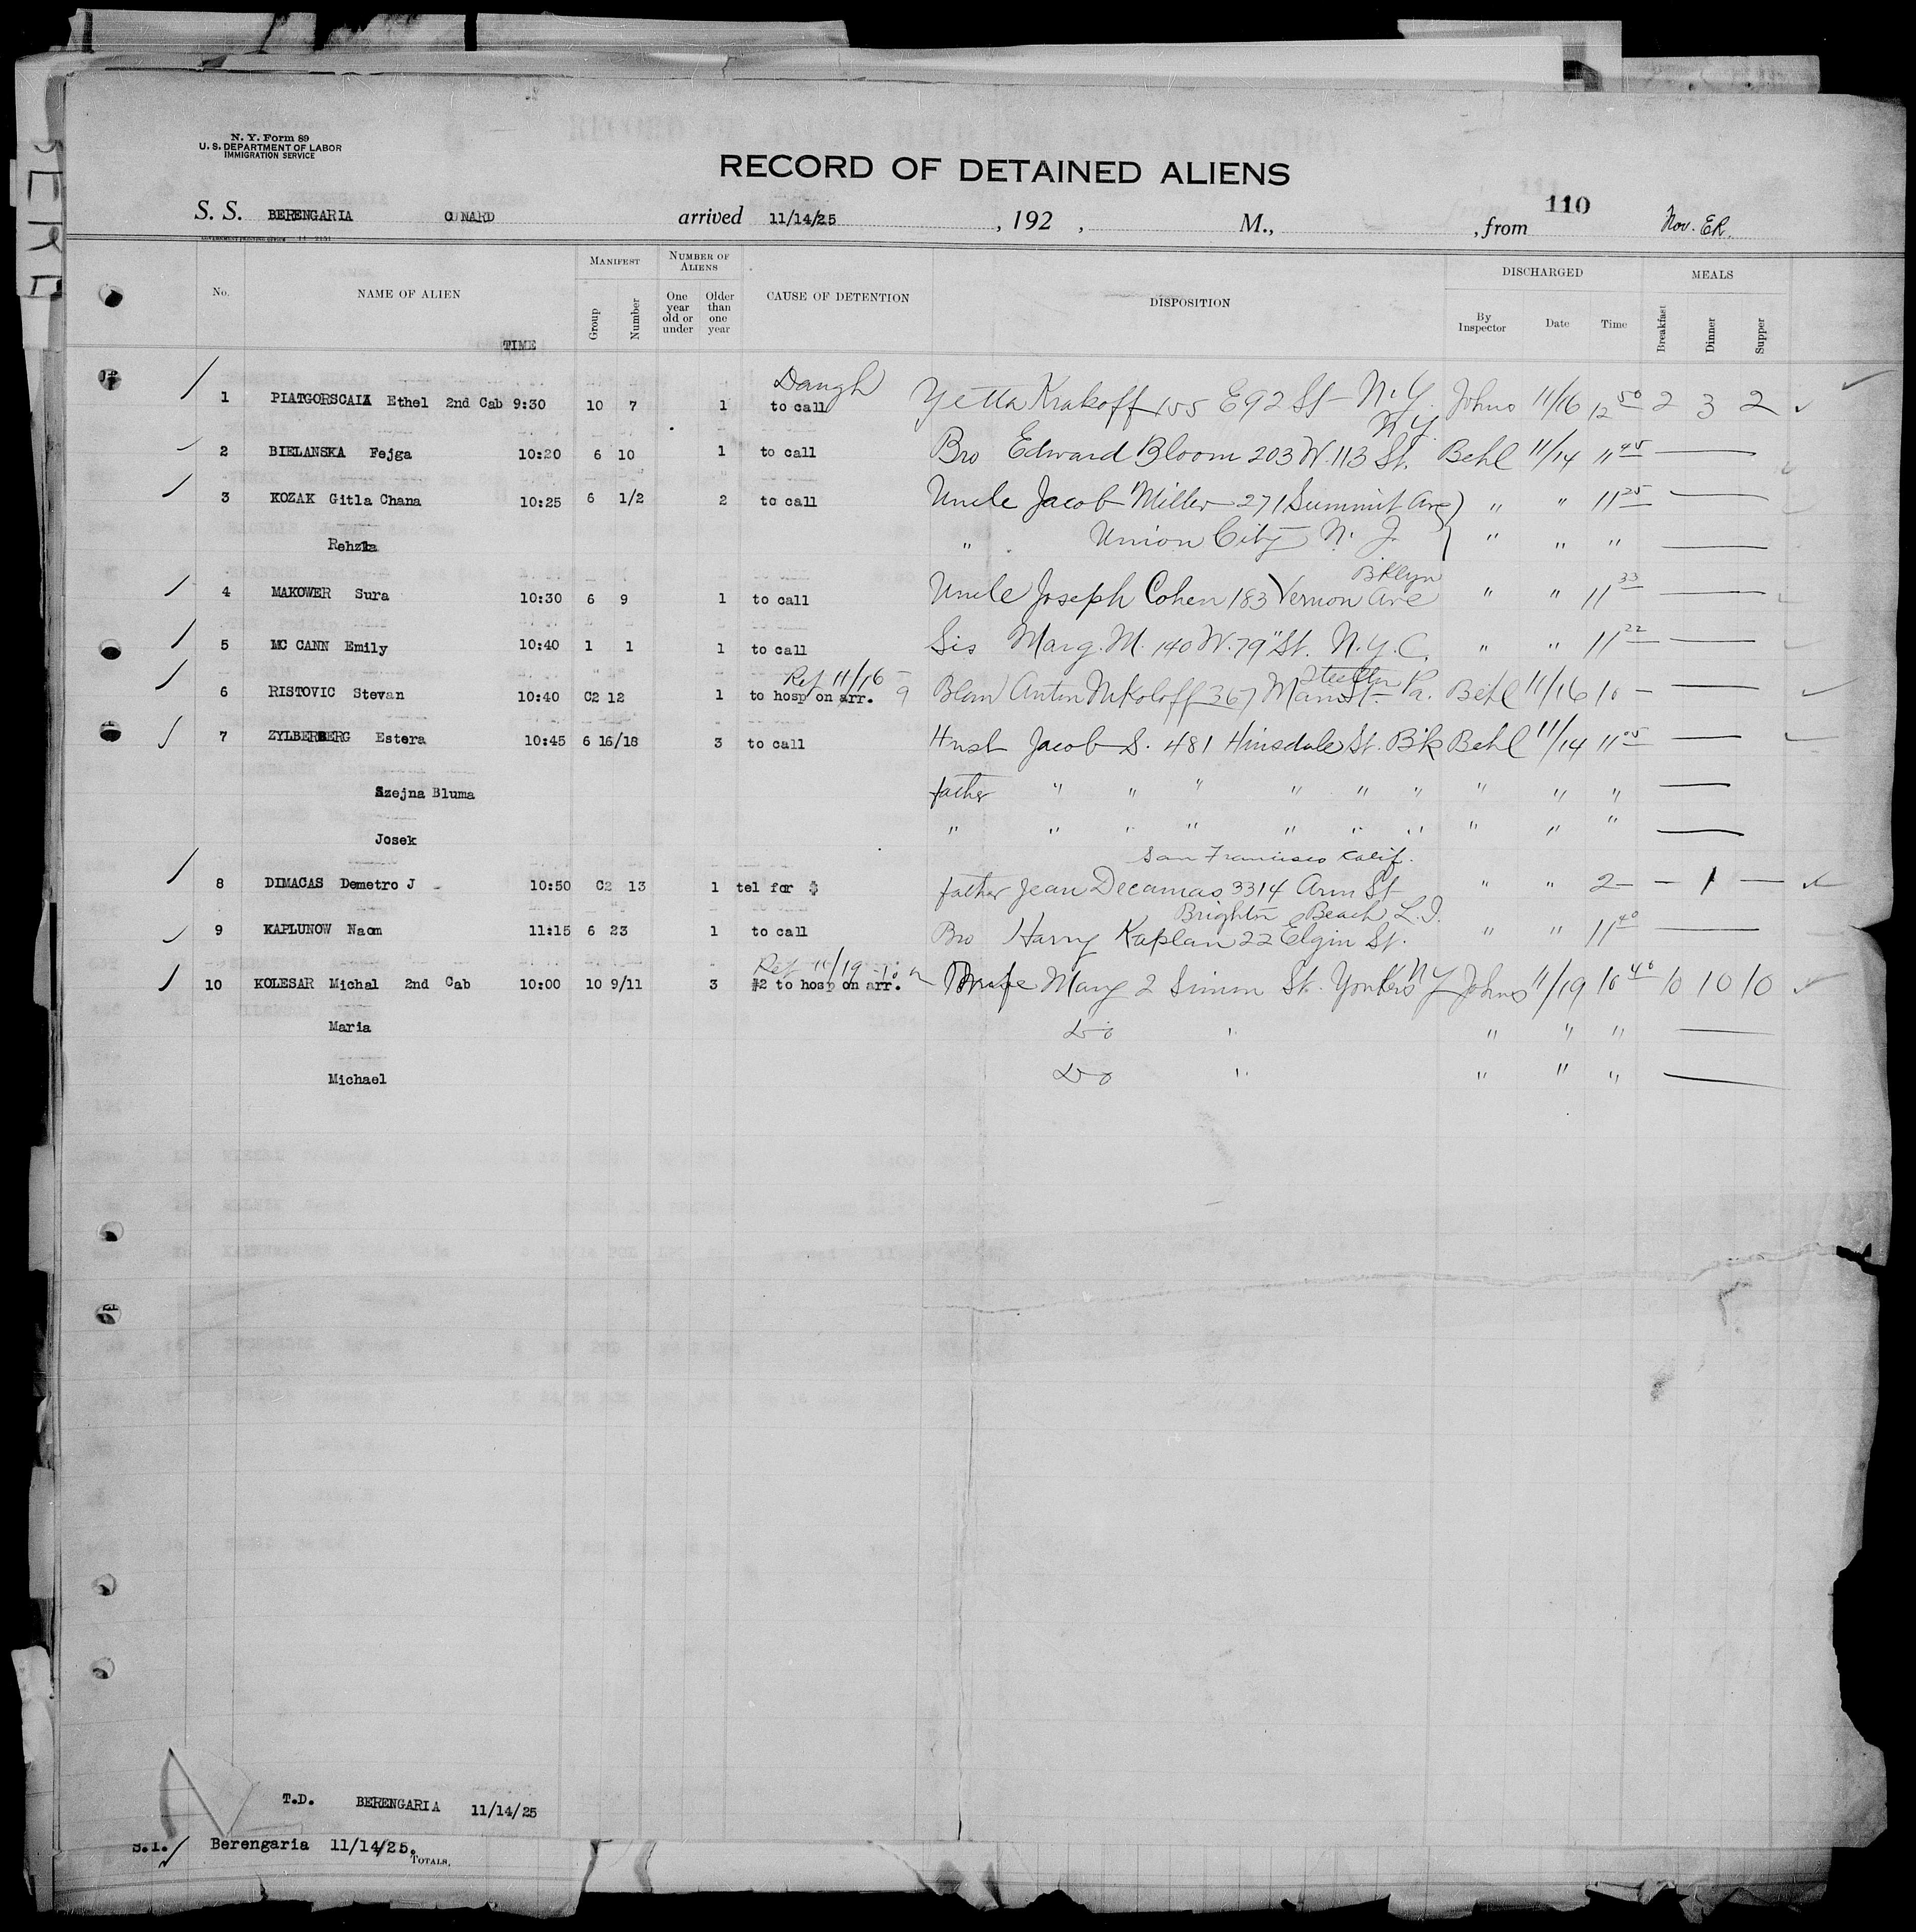 N. Y. Form 89
U. S. DEPARTMENT OF LABOR
IMMIGRATION SERVICE
RECORD OF DETAINED ALIENS
110
S. S. BERENGARIA CUNARD arrived 11/14/25 , 192 , M., , from Nov. ER.
No. NAME OF ALIEN TIME MANIFEST Group Number NUMBER OF ALIENS One year old or under Older than one year CAUSE OF DETENTION DISPOSITION DISCHARGED By Inspector Date Time MEALS Breakfast Dinner Supper
Daugh
1 PIATGORSCAIA Ethel 2nd Cab 9:30 10 7 1 to call Yetta Krakoff 155 E 92 St - N.Y. Johns 11/16 12 50 2 3 2
N.Y.
2 BIELANSKA Fejga 10:20 6 10 1 to call Bro Edward Bloom 203 W. 113 St. Behl 11/14 11 45
3 KOZAK Gitla Chana 10:25 6 1/2 2 to call Uncle Jacob Miller 271 Summit Ave " " 11 25
Rehzla " Union City N. J. " " "
Bklyn
4 MAKOWER Sura 10:30 6 9 1 to call Uncle Joseph Cohen 183 Vernon Ave " " 11 33
5 MC CANN Emily 10:40 1 1 1 to call Sis Marg. M. 140 W. 79" St. N.Y.C. " " 11 22
Ret 11/16 - 9
6 RISTOVIC Stevan 10:40 C2 12 1 to hosp on arr. Anton Nikoloff 367 Main St. Pa. Behl 11/16 10 -
7 ZYLBERBERG Estera 10:45 6 16/18 3 to call Husb Jacob S. 481 Hinsdale St. B'k Behl 11/14 11 05
Szejna Bluma father " " " " " " " " "
Josek " " " " " " " " " "
San Francisco Calif.
8 DIMACAS Demetro J 10:50 C2 13 1 tel for $ father Jean Decamas 3314 Army St " " 2 - - 1 -
Brighton Beach L.I.
9 KAPLUNOW Naom 11:15 6 23 1 to call Bro Harry Kaplan 22 Elgin St. " " 11 40
Ret 11/19 - 10
10 KOLESAR Michal 2nd Cab 10:00 10 9/11 3 #2 to hosp on arr. Wife Mary 2 Simon St. Yonkers N Y Johns 11/19 10 40 10 10 10
Maria Do " " " "
Michael Do " " " "
T.D. BERENGARIA 11/14/25
S.I. Berengaria 11/14/25.
TOTALS.